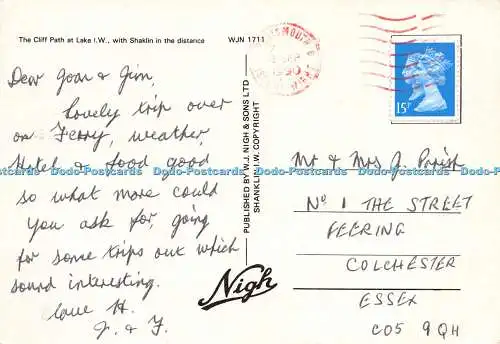 The Cliff Path at Lake I.W., with Shaklin in the distance WJN 1711
Dear Joan & Jim,
Lovely trip over
on Ferry, weather,
Hotel & food good
so what more could
you ask for, going
for some trips out which
sound interesting.
Love H.
J. & J.
PUBLISHED BY W.J. NIGH & SONS LTD
SHANKLIN I.W. COPYRIGHT
Nigh
15P
1990
Mr & Mrs J. Parish
No 1 THE STREET
FEERING
COLCHESTER
ESSEX
CO5 9QH
Dodo-Postcards Dodo-Postcards Dodo-Postcards Dodo-Postcards Dodo-Postcards